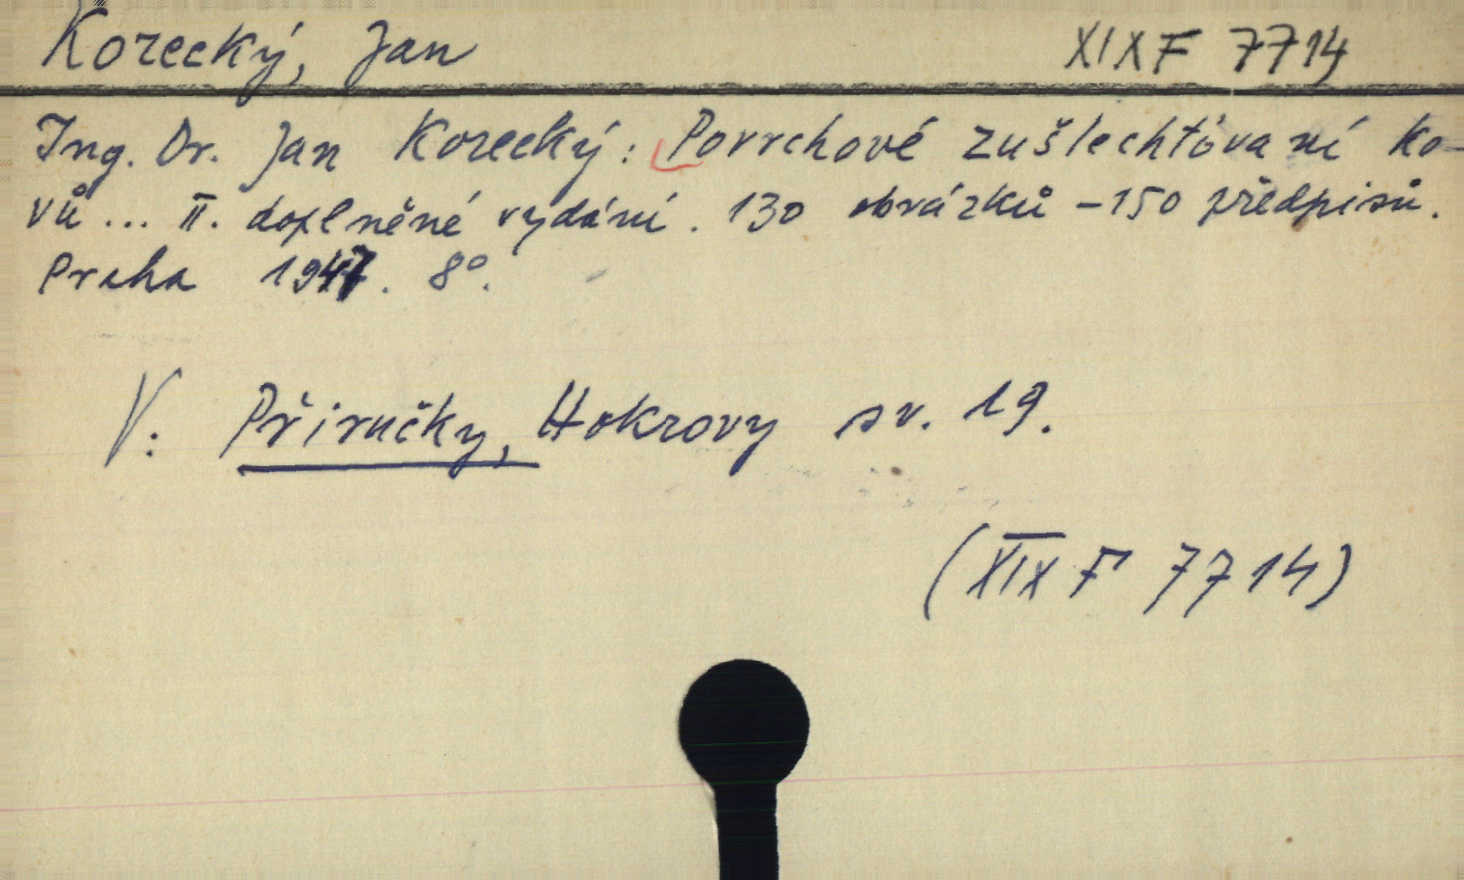 Korecký, Jan XIX F 7714
Ing. Dr. Jan Korecký: Povrchové zušlechťování ko-
vů ... II. doplněné vydání. 130 obrázků - 150 předpisů.
Praha 1947. 8°.
V: Příručky, Hokrovy sv. 19.
(XIX F 7714)